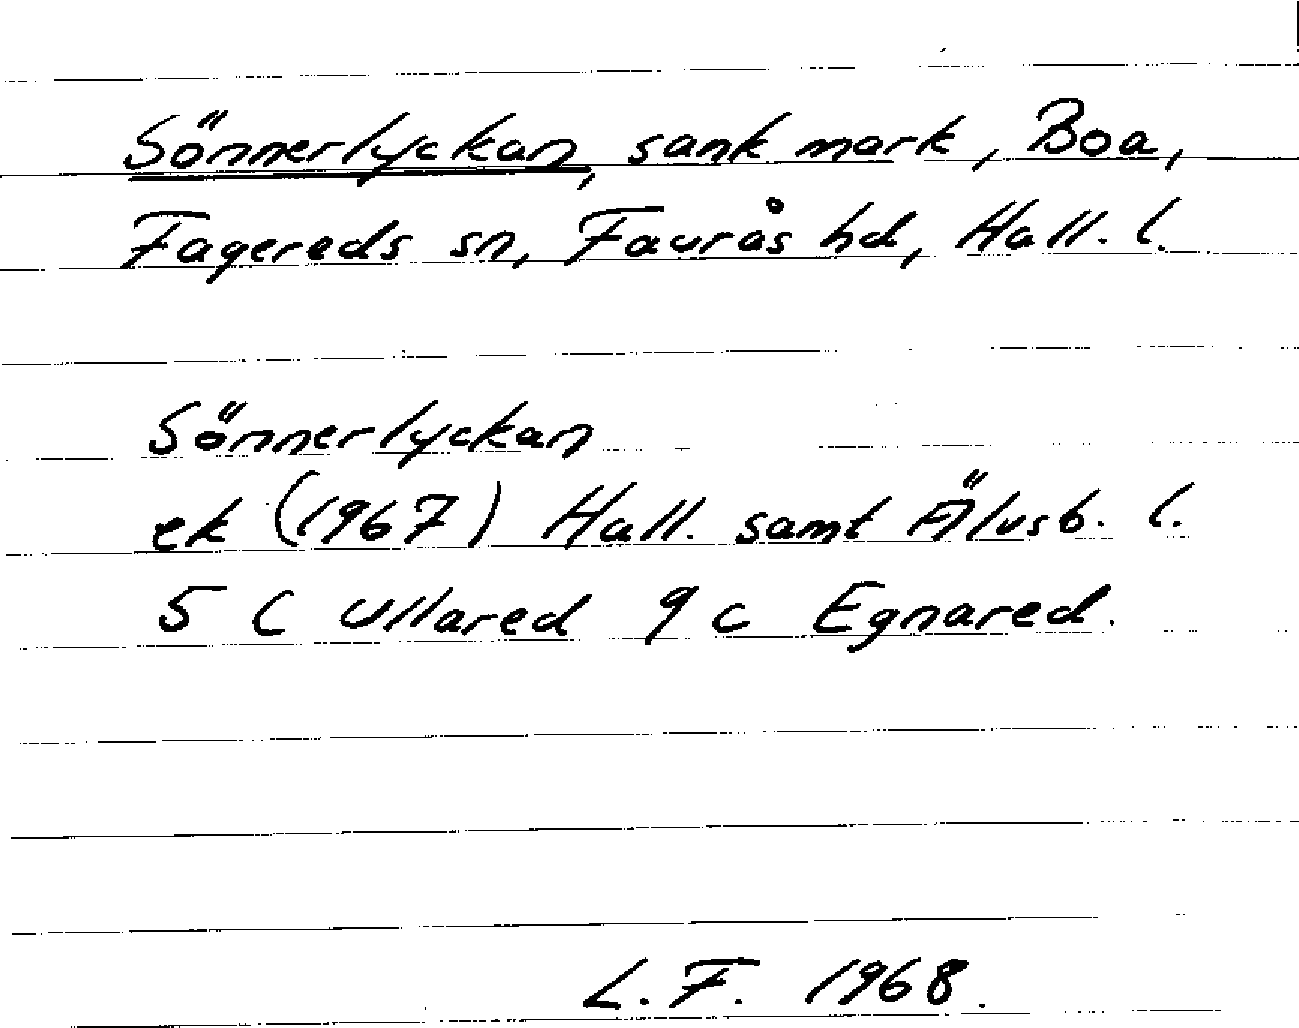 Sönnerlyckan, sank mark, Boa,
Fagereds sn, Faurås hd, Hall. l.
Sönnerlyckan
ek (1967) Hall. samt Älvsb. l.
5 C Ullared 9 c Egnared.
L. F. 1968.